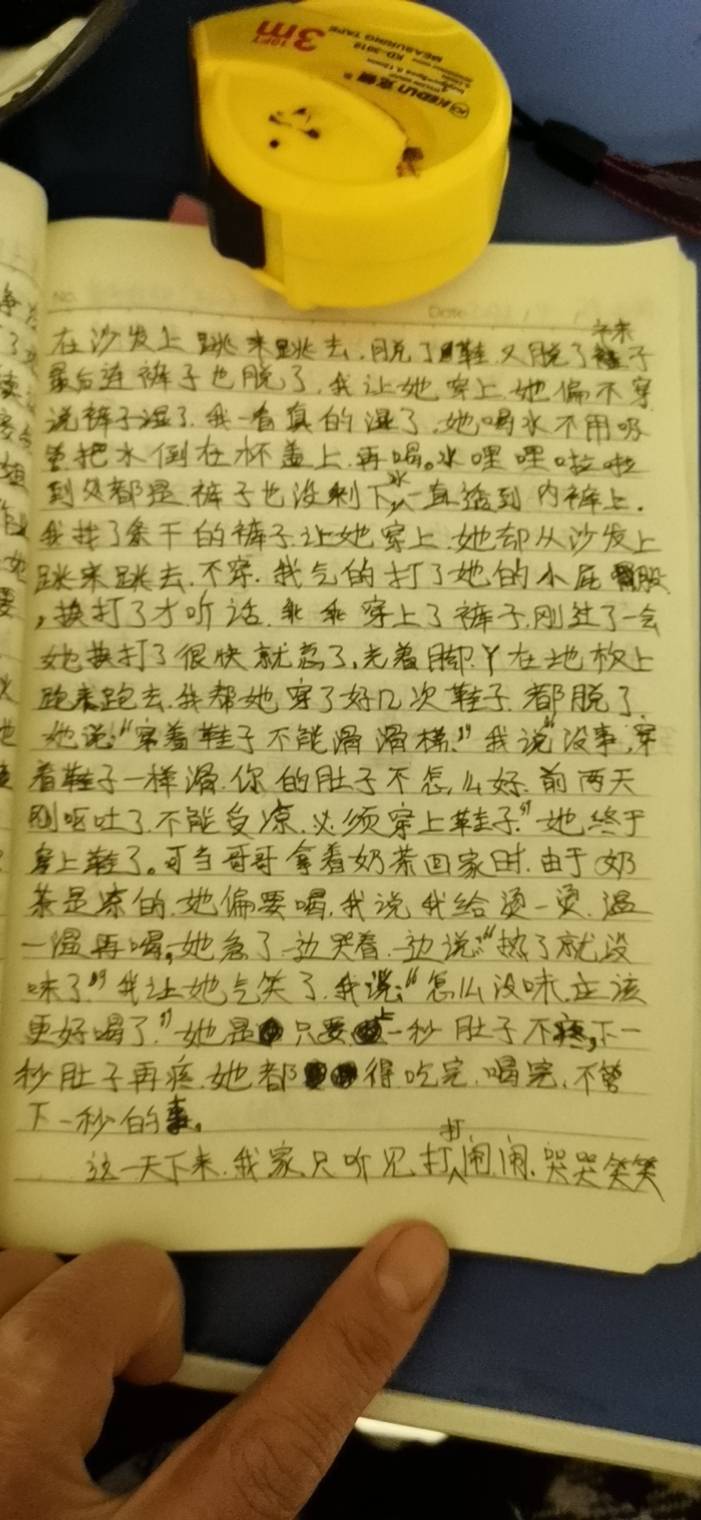 3m
10FT
MEASURING TAPE
KD-3018
KEDUN
NO.
Date
袜
在沙发上跳来跳去,脱了鞋又脱了袜子
最后连裤子也脱了,我让她穿上她偏不穿
说裤子湿了,我一看真的湿了,她喝水不用吸
管把水倒在杯盖上再喝。水哩哩啦啦
到处都是裤子也没剩下水,一直透到内裤上.
我找了条干的裤子让她穿上她却从沙发上
跳来跳去,不穿.我气的打了她的小屁股
,挨打了才听话.乖乖穿上了裤子,刚过了一会
她挨打了很快就忘了,光着脚丫在地板上
跑来跑去.我帮她穿了好几次鞋子都脱了.
她说:“穿着鞋子不能滑滑梯.”我说“没事,穿
着鞋子一样滑.你的肚子不怎么好.前两天
刚呕吐了.不能受凉.必须穿上鞋子.”她终于
穿上鞋了。可当哥哥拿着奶茶回家时.由于奶
茶是凉的.她偏要喝,我说我给烫一烫.温
一温再喝,她急了一边哭着.一边说:“热了就没
味了”我让她气笑了.我说:“怎么没味.应该
更好喝了.”她是只要上一秒肚子不疼,下一
秒肚子再疼.她都得吃完.喝完.不管
下一秒的事。
这一天下来.我家只听见打打闹闹.哭哭笑笑